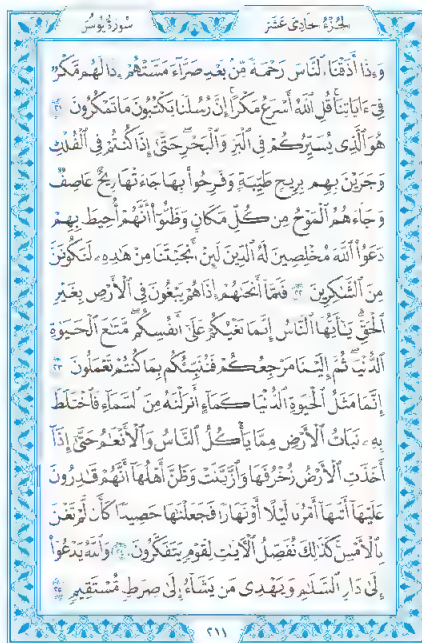 سُورَةُ يُونُسَ
الجُزْءُ الحَادِيَ عَشَرَ
وَإِذَآ أَذَقْنَا ٱلنَّاسَ رَحْمَةً مِّنۢ بَعْدِ ضَرَّآءَ مَسَّتْهُمْ إِذَا لَهُم مَّكْرٌ
فِىٓ ءَايَاتِنَا ۚ قُلِ ٱللَّهُ أَسْرَعُ مَكْرًا ۚ إِنَّ رُسُلَنَا يَكْتُبُونَ مَا تَمْكُرُونَ ٢١
هُوَ ٱلَّذِى يُسَيِّرُكُمْ فِى ٱلْبَرِّ وَٱلْبَحْرِ ۖ حَتَّىٰٓ إِذَا كُنتُمْ فِى ٱلْفُلْكِ
وَجَرَيْنَ بِهِم بِرِيحٍ طَيِّبَةٍ وَفَرِحُوا۟ بِهَا جَآءَتْهَا رِيحٌ عَاصِفٌ
وَجَآءَهُمُ ٱلْمَوْجُ مِن كُلِّ مَكَانٍ وَظَنُّوٓا۟ أَنَّهُمْ أُحِيطَ بِهِمْ ۙ
دَعَوُا۟ ٱللَّهَ مُخْلِصِينَ لَهُ ٱلدِّينَ لَئِنْ أَنجَيْتَنَا مِنْ هَٰذِهِۦ لَنَكُونَنَّ
مِنَ ٱلشَّٰكِرِينَ ٢٢ فَلَمَّآ أَنجَىٰهُمْ إِذَا هُمْ يَبْغُونَ فِى ٱلْأَرْضِ بِغَيْرِ
ٱلْحَقِّ ۗ يَٰٓأَيُّهَا ٱلنَّاسُ إِنَّمَا بَغْيُكُمْ عَلَىٰٓ أَنفُسِكُم ۖ مَّتَٰعَ ٱلْحَيَوٰةِ
ٱلدُّنْيَا ۖ ثُمَّ إِلَيْنَا مَرْجِعُكُمْ فَنُنَبِّئُكُم بِمَا كُنتُمْ تَعْمَلُونَ ٢٣
إِنَّمَا مَثَلُ ٱلْحَيَوٰةِ ٱلدُّنْيَا كَمَآءٍ أَنزَلْنَٰهُ مِنَ ٱلسَّمَآءِ فَٱخْتَلَطَ
بِهِۦ نَبَاتُ ٱلْأَرْضِ مِمَّا يَأْكُلُ ٱلنَّاسُ وَٱلْأَنْعَٰمُ حَتَّىٰٓ إِذَآ
أَخَذَتِ ٱلْأَرْضُ زُخْرُفَهَا وَٱزَّيَّنَتْ وَظَنَّ أَهْلُهَآ أَنَّهُمْ قَٰدِرُونَ
عَلَيْهَآ أَتَىٰهَآ أَمْرُنَا لَيْلًا أَوْ نَهَارًا فَجَعَلْنَٰهَا حَصِيدًا كَأَن لَّمْ تَغْنَ
بِٱلْأَمْسِ ۚ كَذَٰلِكَ نُفَصِّلُ ٱلْءَايَٰتِ لِقَوْمٍ يَتَفَكَّرُونَ ٢٤ وَٱللَّهُ يَدْعُوٓا۟
إِلَىٰ دَارِ ٱلسَّلَٰمِ وَيَهْدِى مَن يَشَآءُ إِلَىٰ صِرَٰطٍ مُّسْتَقِيمٍ ٢٥
٢١١